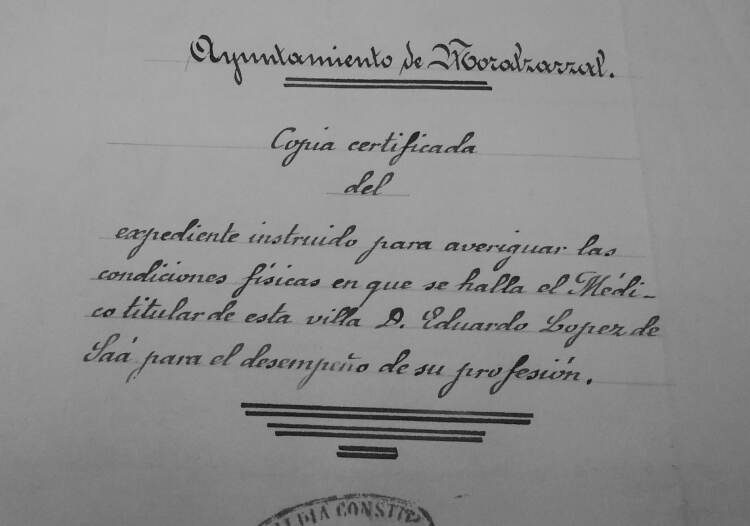 Ayuntamiento de Moralzarzal.
Copia certificada
del
expediente instruido para averiguar las
condiciones físicas en que se halla el Médi-
co titular de esta villa D. Eduardo Lopez de
Saá para el desempeño de su profesión.
ALDIA CONSTIT